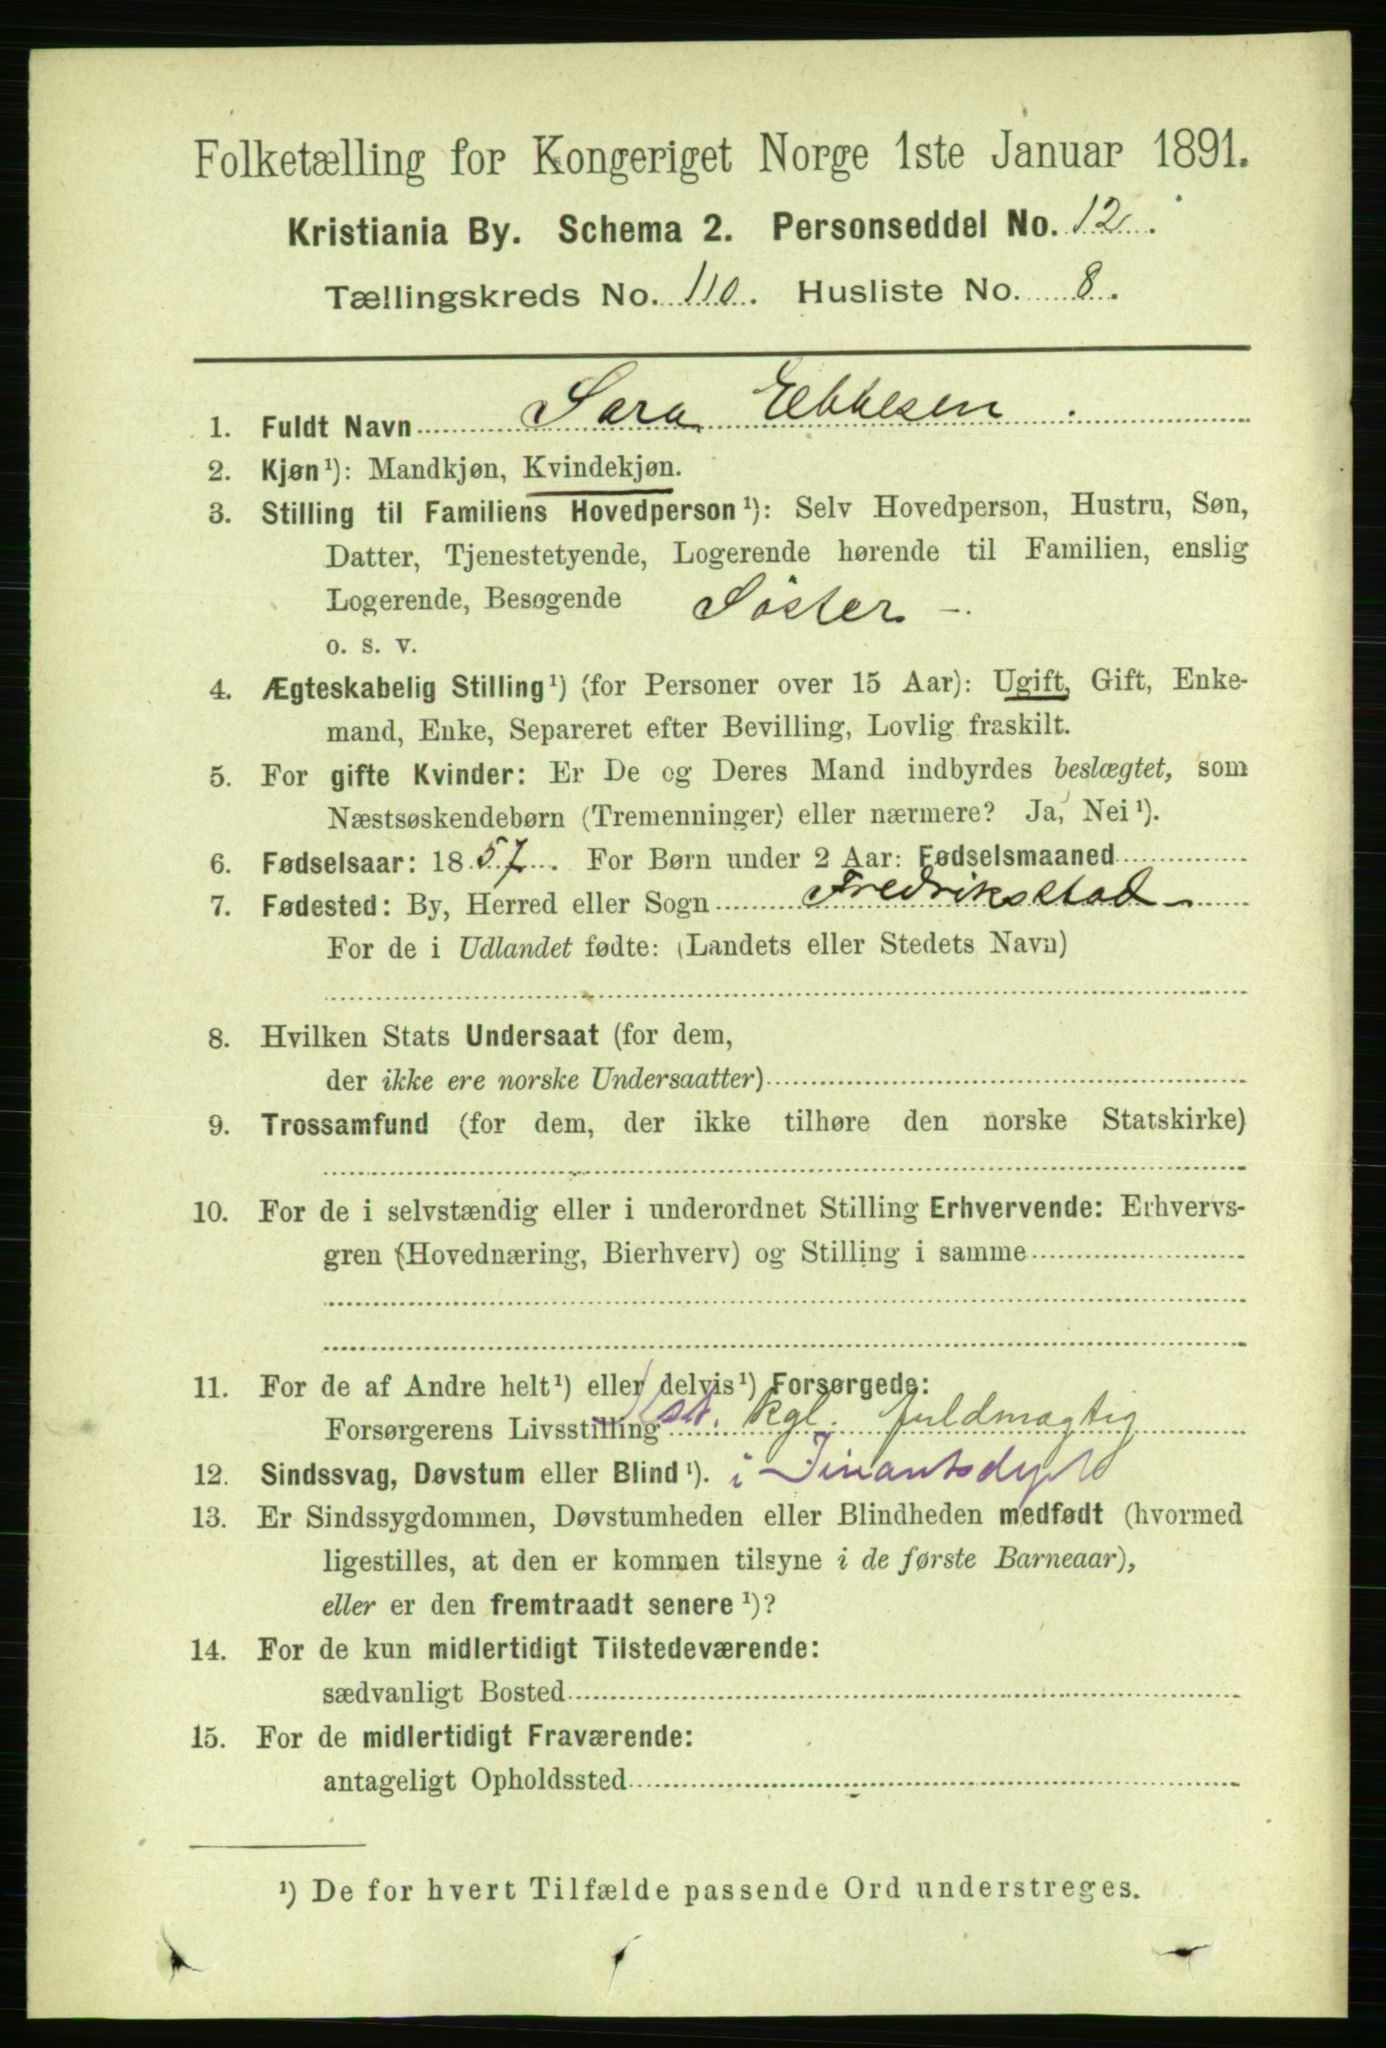 Folketælling for Kongeriget Norge 1ste Januar 1891.
Kristiania By. Schema 2. Personseddel No. 12.
Tællingskreds No. 110. Husliste No. 8.
1. Fuldt Navn Sara Ebbesen
2. Kjøn¹): Mandkjøn, Kvindekjøn.
3. Stilling til Familiens Hovedperson¹): Selv Hovedperson, Hustru, Søn,
Datter, Tjenestetyende, Logerende hørende til Familien, enslig
Logerende, Besøgende Söster -.
o. s. v.
4. Ægteskabelig Stilling¹) (for Personer over 15 Aar): Ugift, Gift, Enke-
mand, Enke, Separeret efter Bevilling, Lovlig fraskilt.
5. For gifte Kvinder: Er De og Deres Mand indbyrdes beslægtet, som
Næstsøskendebørn (Tremenninger) eller nærmere? Ja, Nei¹).
6. Fødselsaar: 1857. For Børn under 2 Aar: Fødselsmaaned
7. Fødested: By, Herred eller Sogn Fredriksstad
For de i Udlandet fødte: (Landets eller Stedets Navn)
8. Hvilken Stats Undersaat (for dem,
der ikke ere norske Undersaatter)
9. Trossamfund (for dem, der ikke tilhøre den norske Statskirke)
10. For de i selvstændig eller i underordnet Stilling Erhvervende: Erhvervs-
gren (Hovednæring, Bierhverv) og Stilling i samme
11. For de af Andre helt¹) eller delvis¹) Forsørgede:
Forsørgerens Livsstilling kgl. fuldmægtig
12. Sindssvag, Døvstum eller Blind¹). i Finantsdept
13. Er Sindssygdommen, Døvstumheden eller Blindheden medfødt (hvormed
ligestilles, at den er kommen tilsyne i de første Barneaar),
eller er den fremtraadt senere¹)?
14. For de kun midlertidigt Tilstedeværende:
sædvanligt Bosted
15. For de midlertidigt Fraværende:
antageligt Opholdssted
¹) De for hvert Tilfælde passende Ord understreges.